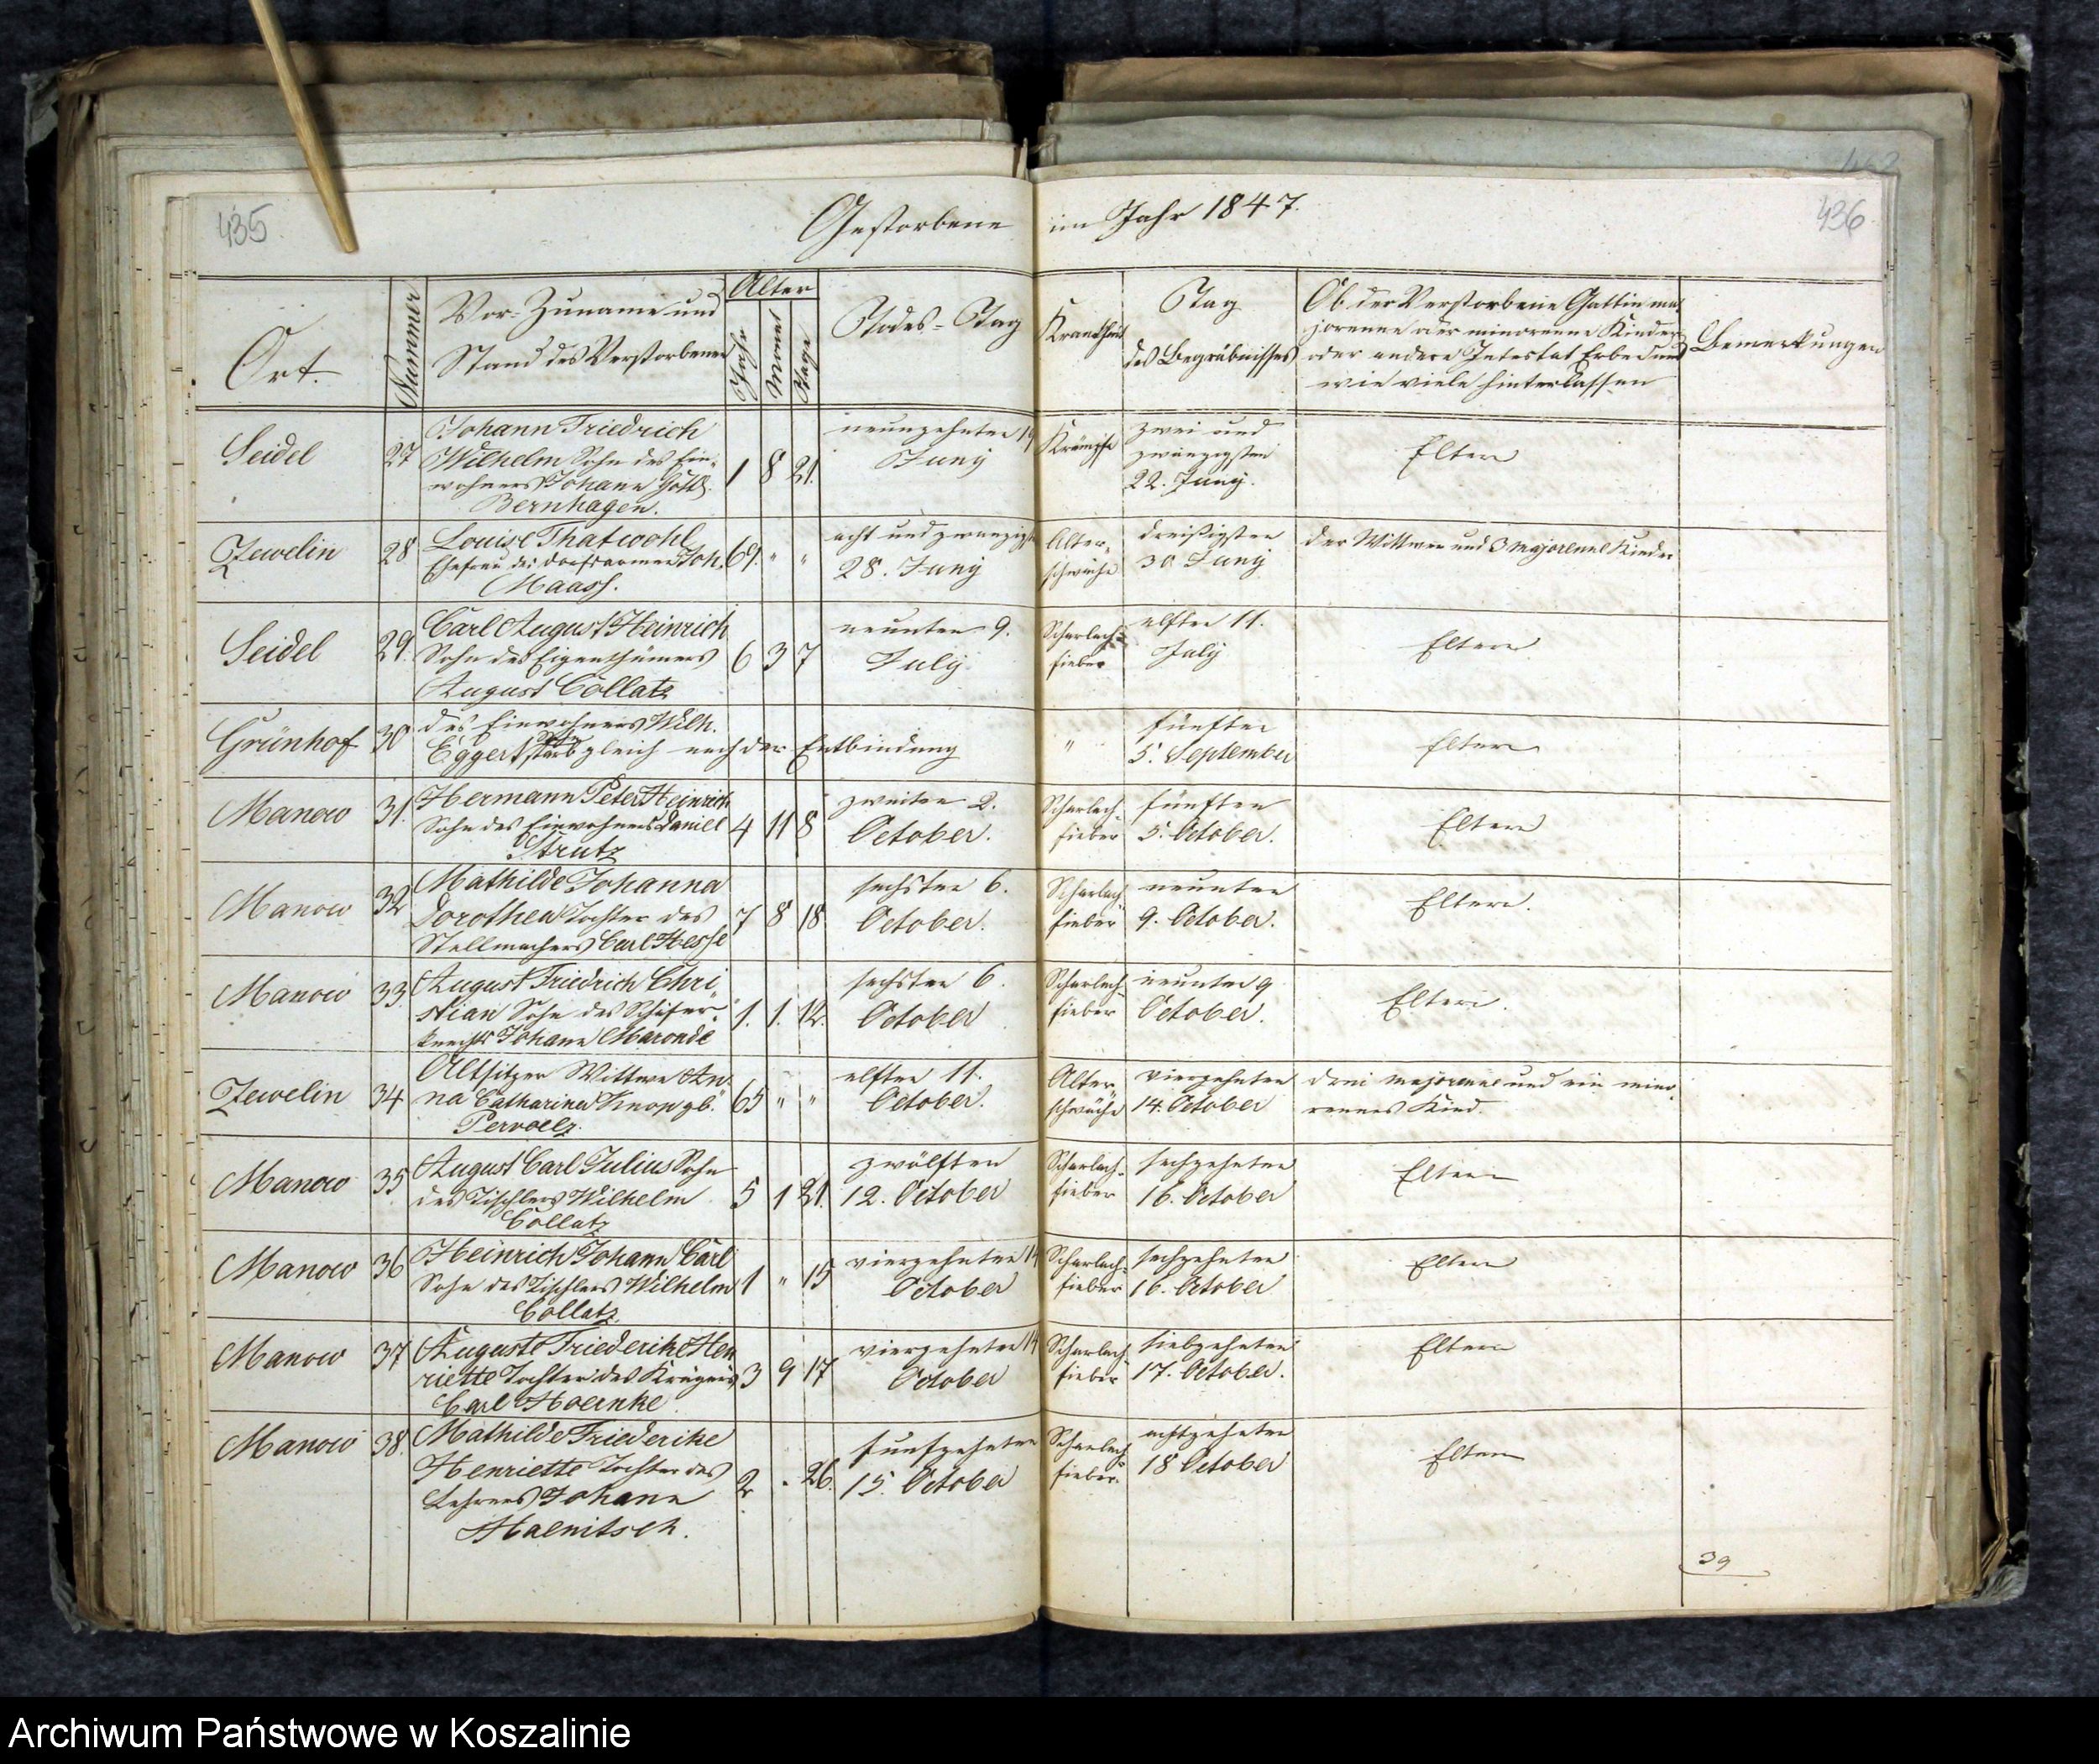 435
Gestorbene im Jahr 1847.
436
Ort.
Nummer
Vor- Zuname und
Stand des Verstorbenen
Alter
Jahr
Monat
Tage
Todes-Tag
Krankheit
Tag
des Begräbnisses
Ob der Verstorbene Gattin ma-
jorenne oder minorenne Kinder
oder andere Intestat Erben und
wie viele hinterlassen
Bemerkungen
Seidel 27 Johann Friedrich
Wilhelm Sohn des Ein-
wohners Johann Gottl.
Bernhagen.
1 8 21.
neunzehnten 19
Juny
Krämpfe
zwei und
zwanzigsten
22. Juny.
Eltern
Zewelin 28 Louise Thatwohl
Ehefrau des Dorfsarmen Joh.
Maass.
69. " "
acht und zwanzigsten
28. Juny
Alter-
schwäche
dreißigsten
30. Juny
der Wittwer und 3 majorenne Kinder
Seidel 29. Carl August Heinrich
Sohn des Eigenthümers
August Collatz
6 3 7
neunten 9.
July
Scharlach-
fieber
elften 11.
July
Eltern
Grünhof 30 des Einwohners Wilh.
Eggert Sohn starb gleich nach der Entbindung
"
fünften
5. September
Eltern
Manow 31. Hermann Peter Heinrich
Sohn des Einwohners Daniel
Strutz
4 11 8
zweiten 2.
October.
Scharlach-
fieber
fünften
5. October.
Eltern
Manow 32 Mathilde Johanna
Dorothea Tochter des
Stellmachers Carl Hesse
7 8 18
sechsten 6.
October.
Scharlach
fieber
neunten
9. October.
Eltern.
Manow 33. August Friedrich Chri
stian Sohn des Schäfer-
knechts Johann Maronde
1. 1. 12.
sechsten 6.
October
Scharlach-
fieber
neunten 9
October.
Eltern.
Zewelin 34 Altsitzer Wittwe An-
na Catharina Knop gb.
Pervoelz.
65 " "
elften 11.
October.
Alter
schwäche
vierzehnten
14. October
drei majorenne und ein mino-
rennes Kind.
Manow 35 August Carl Julius Sohn
des Tischlers Wilhelm
Collatz
5 1 21.
zwölften
12. October
Scharlach-
fieber
sechzehnten
16. October
Eltern
Manow 36 Heinrich Johann Carl
Sohn des Tischlers Wilhelm
Collatz.
1 " 15
vierzehnten 14
October
Scharlach-
fieber
sechzehnten
16. October
Eltern
Manow 37 Auguste Friederike Hen
riette Tochter des Krügers
Carl Hoernke
3 9 17
vierzehnten 14
October
Scharlach
fieber
siebzehnten
17. October.
Eltern
Manow 38. Mathilde Friederike
Henriette Tochter des
Lehrers Johann
Haenitsch.
2. " 26.
funfzehnten
15. October
Scharlach
fieber.
achtzehnten
18 October
Eltern
39
Archiwum Państwowe w Koszalinie